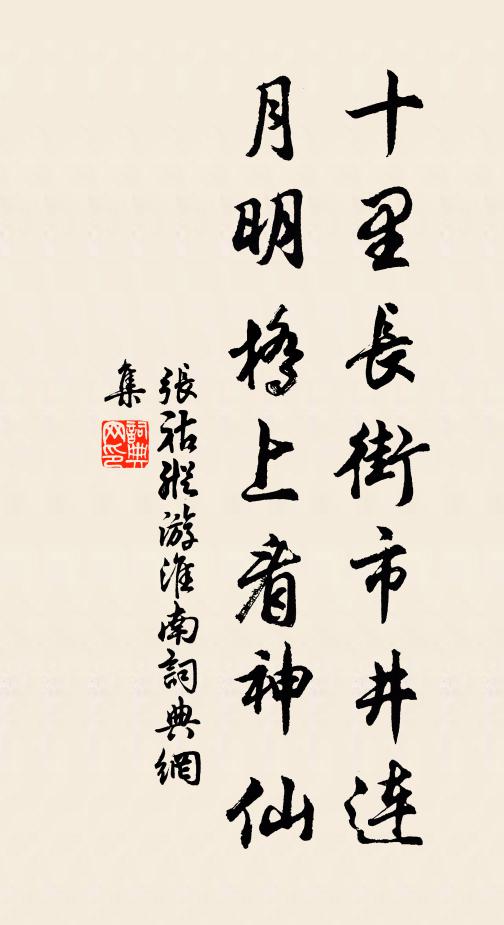 十里長街市井連
月明橋上看神仙
張祜縱游淮南詞典網
集
詞典
网印